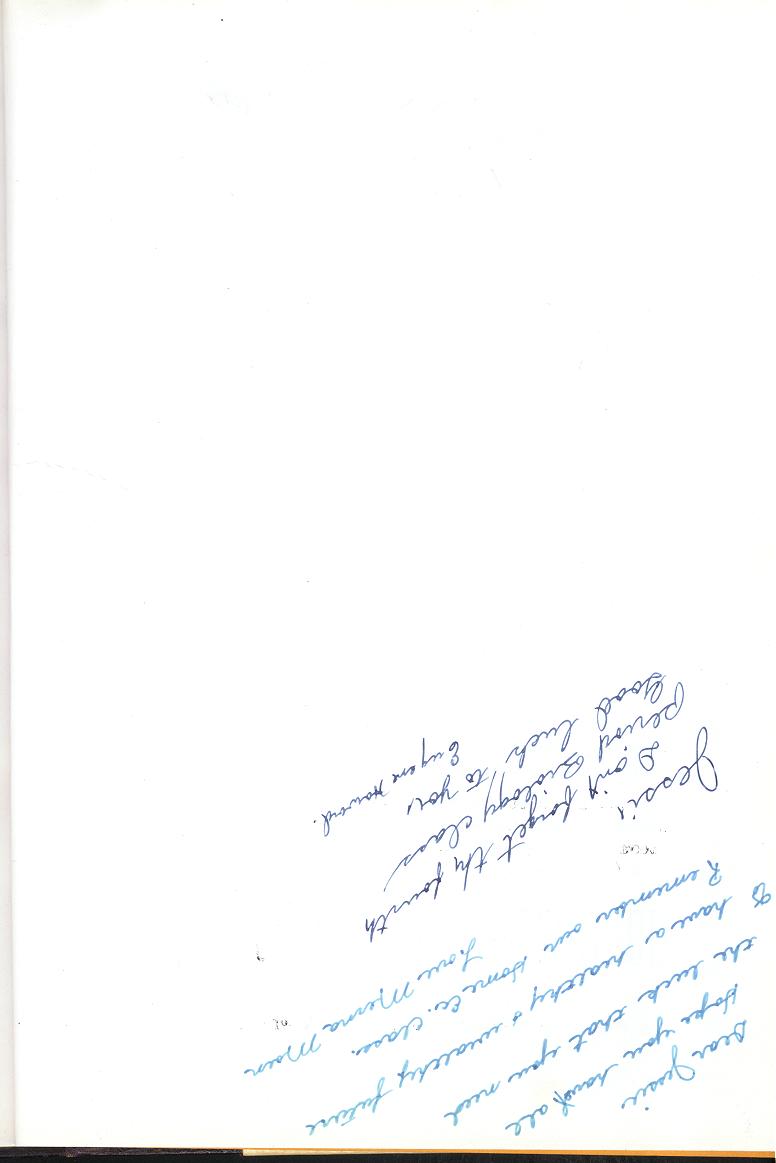 Dear Jessie
Hope you have all
the luck that you need
to have a healthy & wealthy future
Remember our Home Ec. class.
Love Merna
Jessie
Don't forget thy fourth
period Biology class
Good luck to you
Eugene Howard.